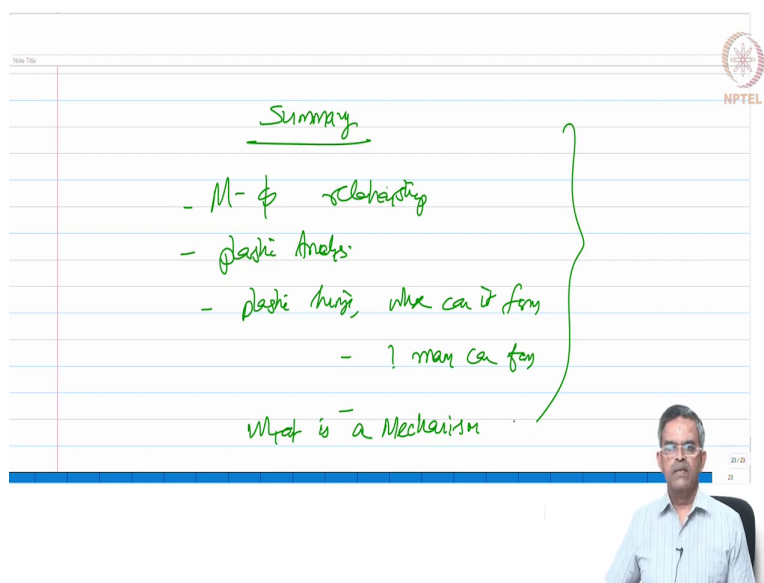 Note Title
NPTEL
Summary
- M-φ relationship
- plastic Analysis
- plastic hinge, where can it form
- ? many can form
-
What is a Mechanism
23/23
23